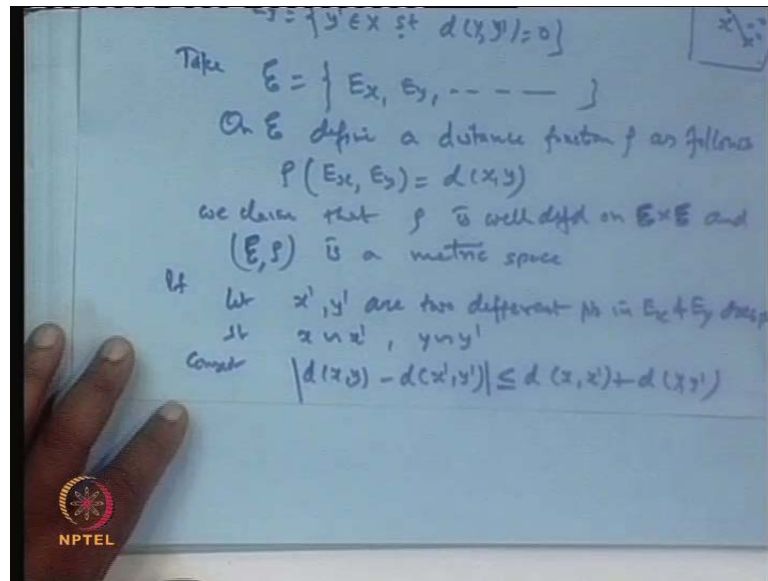 = { y' ∈ X st d(y, y') = 0 }
x x' x''
Take ℰ = { Ex, Ey, - - - - - }
On ℰ define a distance function ρ as follows
ρ ( Ex, Ey) = d(x,y)
we claim that ρ is well defd on ℰ×ℰ and
(ℰ, ρ) is a metric space
Pf Let x', y' are two different pts in Ex & Ey resp
st x ~ x', y ~ y'
|d(x,y) - d(x',y')| ≤ d (x, x') + d (y,y')
NPTEL